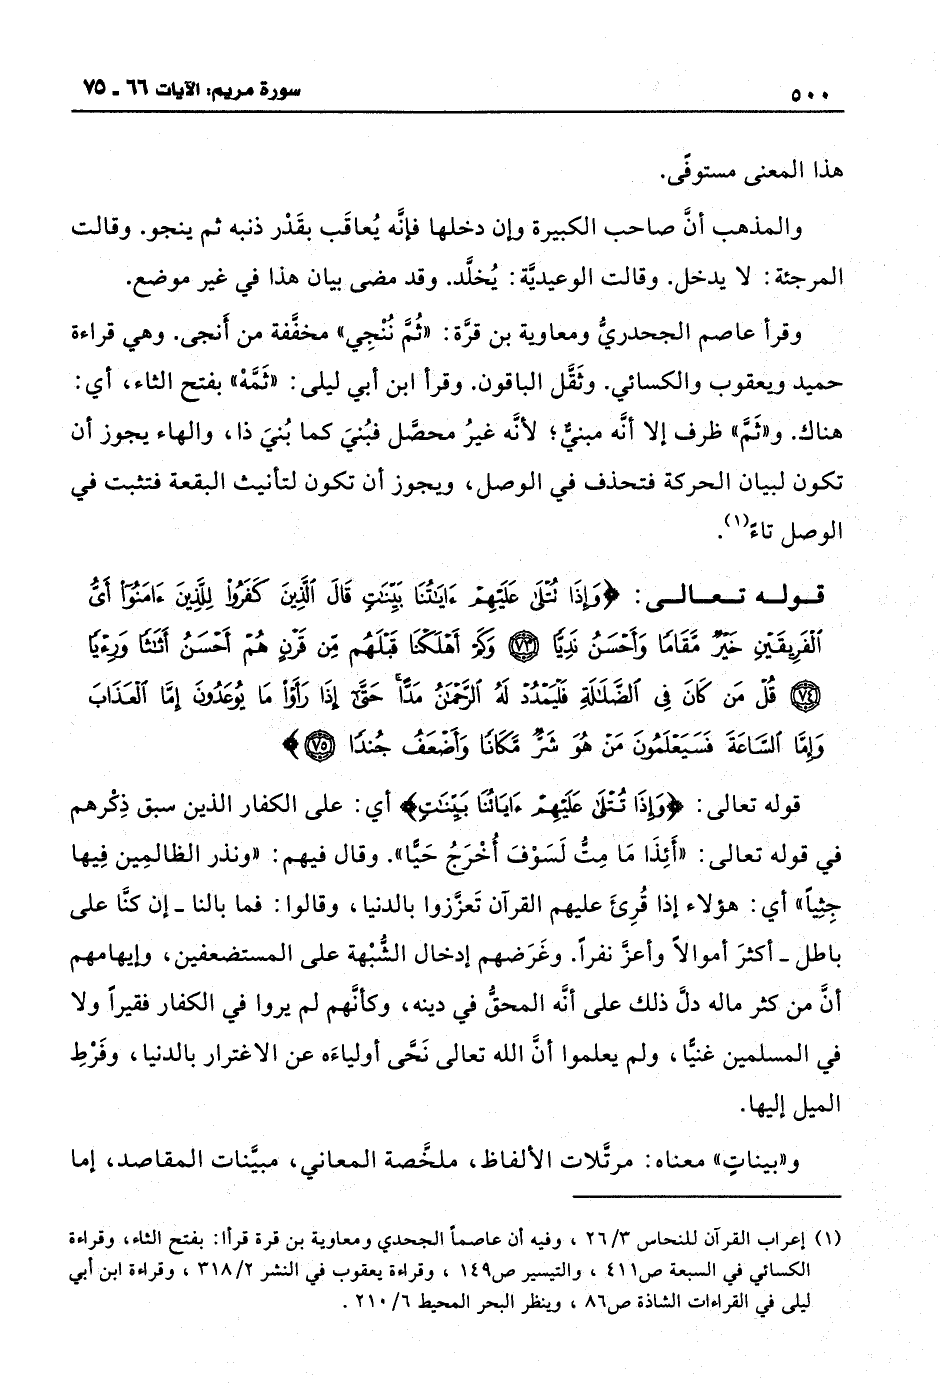 ٥٠٠ سورة مريم: الآيات ٦٦ ـ ٧٥
هذا المعنى مستوفًى.
والمذهب أنَّ صاحب الكبيرة وإن دخلها فإنَّه يُعاقَب بقَدْر ذنبه ثم ينجو. وقالت
المرجئة: لا يدخل. وقالت الوعيديَّة: يُخلَّد. وقد مضى بيان هذا في غير موضع.
وقرأ عاصم الجحدريُّ ومعاوية بن قرَّة: «ثُمَّ نُنْجِي» مخفَّفة من أَنجى. وهي قراءة
حميد ويعقوب والكسائي. وثَقَّل الباقون. وقرأ ابن أبي ليلى: «ثَمَّهْ» بفتح الثاء، أي:
هناك. و«ثَمَّ» ظرف إلا أنَّه مبنيٌّ؛ لأنَّه غيرُ محصَّل فبُنيَ كما بُنيَ ذا، والهاء يجوز أن
تكون لبيان الحركة فتحذف في الوصل، ويجوز أن تكون لتأنيث البقعة فتثبت في
الوصل تاءً(١).
قوله تعالى: ﴿وَإِذَا تُتْلَىٰ عَلَيْهِمْ ءَايَٰتُنَا بَيِّنَٰتٍ قَالَ ٱلَّذِينَ كَفَرُوا۟ لِلَّذِينَ ءَامَنُوٓا۟ أَىُّ
ٱلْفَرِيقَيْنِ خَيْرٌ مَّقَامًا وَأَحْسَنُ نَدِيًّا ٧٣ وَكَمْ أَهْلَكْنَا قَبْلَهُم مِّن قَرْنٍ هُمْ أَحْسَنُ أَثَٰثًا وَرِءْيًا
٧٤ قُلْ مَن كَانَ فِى ٱلضَّلَٰلَةِ فَلْيَمْدُدْ لَهُ ٱلرَّحْمَٰنُ مَدًّا ۚ حَتَّىٰٓ إِذَا رَأَوْا۟ مَا يُوعَدُونَ إِمَّا ٱلْعَذَابَ
وَإِمَّا ٱلسَّاعَةَ فَسَيَعْلَمُونَ مَنْ هُوَ شَرٌّ مَّكَانًا وَأَضْعَفُ جُندًا ٧٥﴾
قوله تعالى: ﴿وَإِذَا تُتْلَىٰ عَلَيْهِمْ ءَايَاتُنَا بَيِّنَٰتٍ﴾ أي: على الكفار الذين سبق ذِكْرهم
في قوله تعالى: «أَئِذَا مَا مِتُّ لَسَوْفَ أُخْرَجُ حَيًّا». وقال فيهم: «ونذر الظالمِين فِيها
جِثِياً» أي: هؤلاء إذا قُرِئَ عليهم القرآن تَعزَّزوا بالدنيا، وقالوا: فما بالنا ـ إن كنَّا على
باطل ـ أكثرَ أموالاً وأعزَّ نفراً. وغَرَضهم إدخال الشُّبْهة على المستضعفين، وإيهامهم
أنَّ من كثر ماله دلَّ ذلك على أنَّه المحقُّ في دينه، وكأنَّهم لم يروا في الكفار فقيراً ولا
في المسلمين غنيًّا، ولم يعلموا أنَّ الله تعالى نَحَّى أولياءَه عن الاغترار بالدنيا، وفَرْطِ
الميل إليها.
و«بيناتٍ» معناه: مرتَّلات الألفاظ، ملخَّصة المعاني، مبيَّنات المقاصد، إما
(١) إعراب القرآن للنحاس ٢٦/٣ ، وفيه أن عاصماً الجحدي ومعاوية بن قرة قرأا: بفتح الثاء، وقراءة
الكسائي في السبعة ص٤١١ ، والتيسير ص١٤٩ ، وقراءة يعقوب في النشر ٣١٨/٢ ، وقراءة ابن أبي
ليلى في القراءات الشاذة ص٨٦ ، وينظر البحر المحيط ٢١٠/٦ .